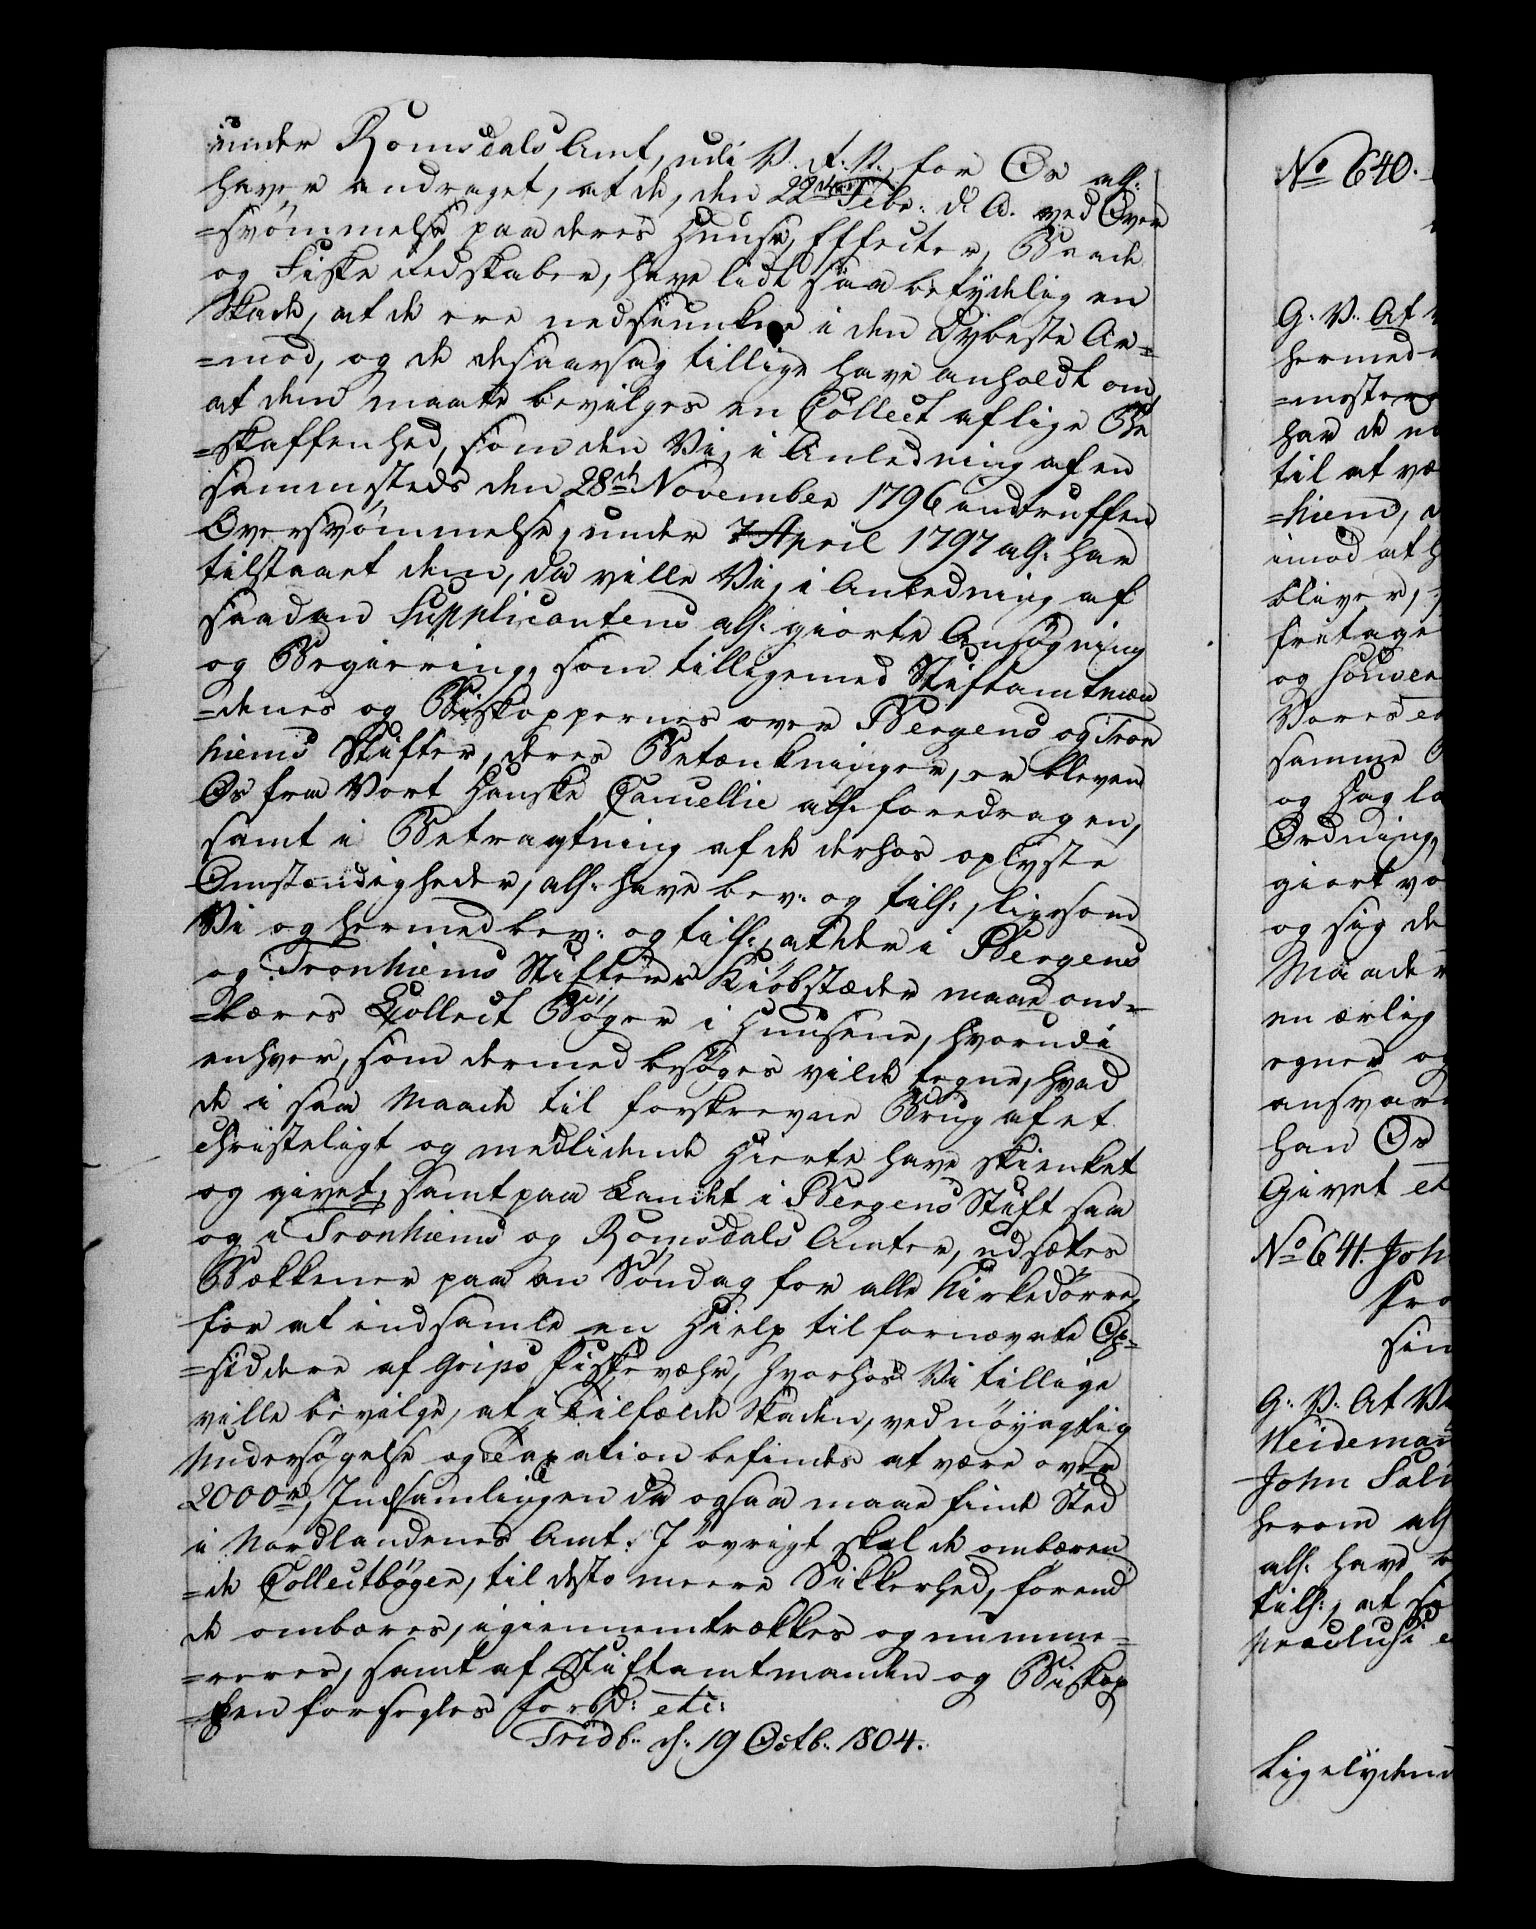 under Romsdals Amt, udi V. R. N. for Os all:
haver andraget, at de, den 22de Febr: d. A. ved Over
=svømmelse paa deres Huuse, Effecter, Baade
og Fiske Redskaber, have lidt saa betydelig en
Skade, at de ere nedsiunkne i den dybeste Ar=
=mod, og de desaarsag tillige have anholdt om,
at dem maatte bevilges en Collect af lige Be
=skaffenhed, som den Vi, i Anledning af en
sammesteds den 28de November 1796 indtruffen
Oversvømmelse, under 7 April 1797 all: har
tilstaaet dem, da ville Vi, i Anledning af
saadan Supplicantens all: giorte Ansøgning
og Begiering, som tilligemed Stiftamtmæn
=denes og Biskoppernes over Bergens og Tron
hiems Stifter, deres Betænkninger, er bleven
Os fra Vort danske Cancellie all: foredragen,
samt i Betragtning af de derhos oplyste
Omstændigheder, all: have bev: og till:, ligesom
Vi og hermed bev: og till:, at der i Bergens
og Tronhiems Stifters Kiøbstæder maae om=
=bæres Collect Bøger i Huusene, hvorudi
enhver, som dermed besøges vilde tegne, hvad
de i saa Maade til forskrevne Brug af et
christeligt og medlidende Hierte have skienket
og givet, samt paa Landet i Bergens Stift saa
og i Tronhiems og Romsdals Amter, udsættes
Bækkener paa en Søndag for alle Kirkedørre,
for at indsamle en Hielp til fornævnte Op=
=siddere af Grips Fiskevæhr, hvorhos Vi tillige
ville bevilge, at i Tilfælde Skaden, ved nøyagtig
Undersøgelse og Taxation befindes at være over
2000rd, Indsamlingen da ogsaa maae finde Sted
i Nordlandenes Amt. I øvrigt skal de ombæren
=de Collectbøger, til desto meere Sikkerhed, førend
de ombæres, igiennemtrækkes og numme=
=reres, samt af Stiftamtmanden og Biskop
=pen forsegles forbd: etc:
Fridb: d: 19 Octb: 1804.
No 640.
G: V: At
hermed
=mester
har de
til at væ
=hiem,
imod at h
bliver,
fritage
og
Vores
samme
og
Ordning,
giort vo
og sig de
Maade
en ærlig
egner og
ansvar
han Os
Givet etc
No 641. Joh
Fro
sin
G: V: At V
Weideman
John Sal
herom all
all: have b
till:, at
Ligelydend